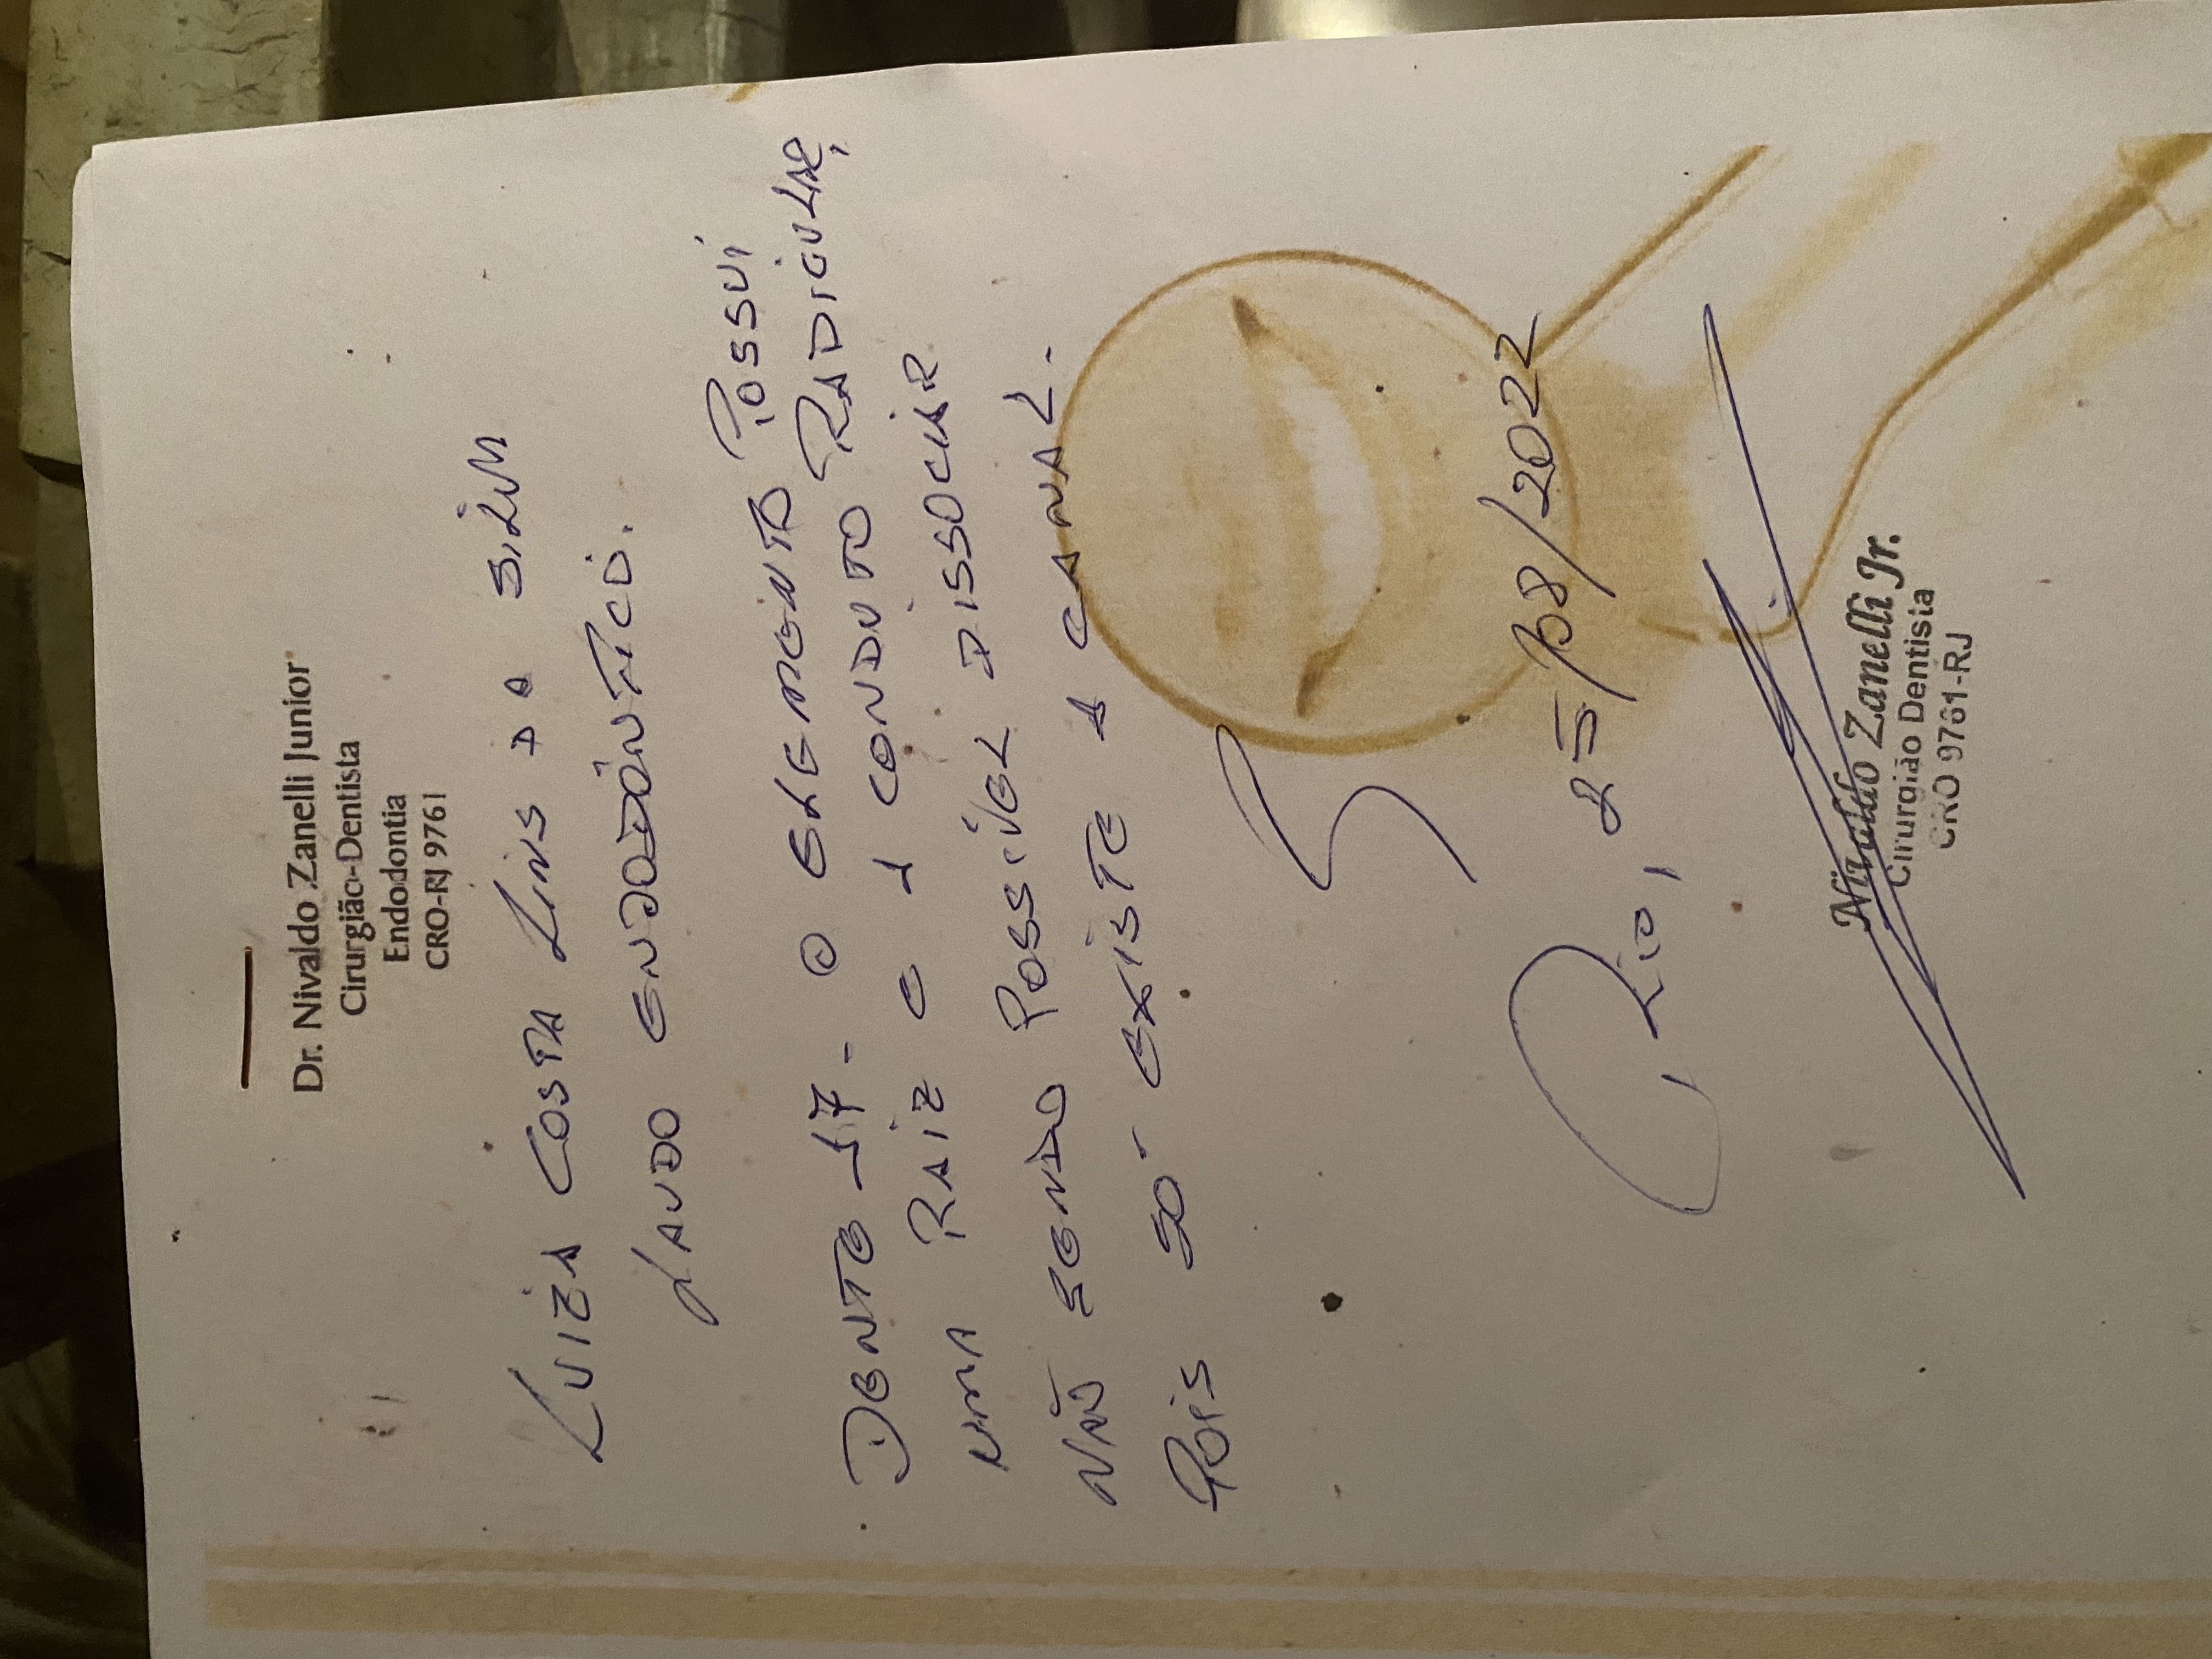 Dr. Nivaldo Zanelli Junior
Cirurgião-Dentista
Endodontia
CRO-RJ 9761
LUIZA COSTA LINS DA SILVA
LAUDO ENDODÔNTICO.
DENTE 17 - O ELEMENTO POSSUI
UMA RAIZ E 1 CONDUTO RADICULAR,
NÃO SENDO POSSÍVEL DISSOCIAR
POIS SÓ EXISTE 1 CANAL.
RIO, 25/08/2022
Nivaldo Zanelli Jr.
Cirurgião Dentista
CRO 9761-RJ